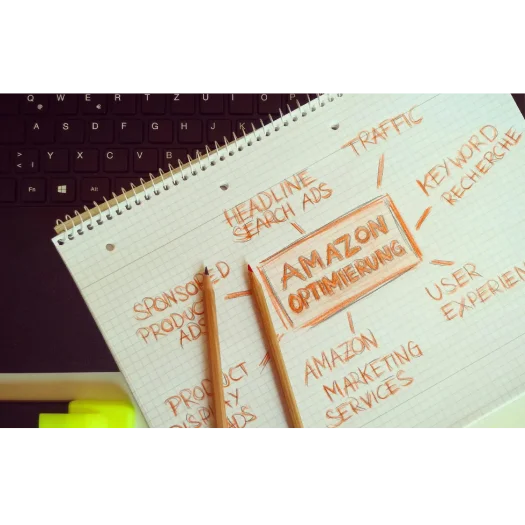 Q W E R T Z U I O P
@ €
A S D F G H J K
> Y X C V B N
< |
Fn Alt
TRAFFIC
KEYWORD
RECHERCHE
HEADLINE
SEARCH ADS
AMAZON
OPTIMIERUNG
SPONSORED
PRODUCT
ADS
USER
EXPERIEN
AMAZON
MARKETING
SERVICES
PRODUCT
DISPLAY
ADS